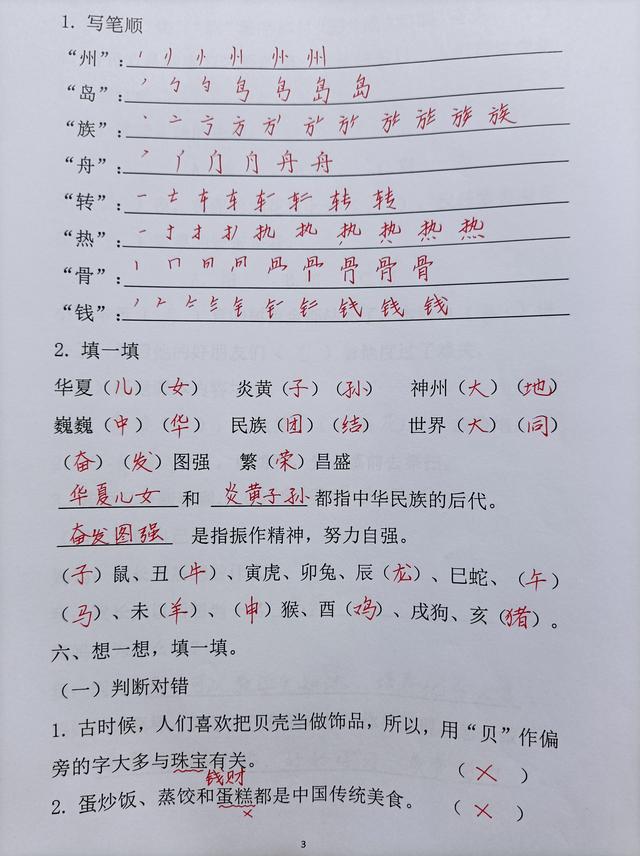 1. 写笔顺
“州”：丶 丿 州 州 州
“岛”：岛 岛 岛
“族”：丶 亠 方 方 族 族
“舟”：丿 舟 舟
“转”：一 车 车 转 转
“热”：一 扌 扌 执 执 热 热 热
“骨”：丨 冂 骨 骨 骨
“钱”：丿 钅 钱 钱 钱
2. 填一填
华夏（儿）（女） 炎黄（子）（孙） 神州（大）（地）
巍巍（中）（华） 民族（团）（结） 世界（大）（同）
（奋）（发）图强 繁（荣）昌盛
华夏儿女 和 炎黄子孙 都指中华民族的后代。
奋发图强 是指振作精神，努力自强。
（子）鼠、丑（牛）、寅虎、卯兔、辰（龙）、巳蛇、（午）
（马）、未（羊）、（申）猴、酉（鸡）、戌狗、亥（猪）。
六、想一想，填一填。
（一）判断对错
1. 古时候，人们喜欢把贝壳当做饰品，所以，用“贝”作偏
旁的字大多与珠宝有关。 （×）
钱财
2. 蛋炒饭、蒸饺和蛋糕都是中国传统美食。 （×）
×
3